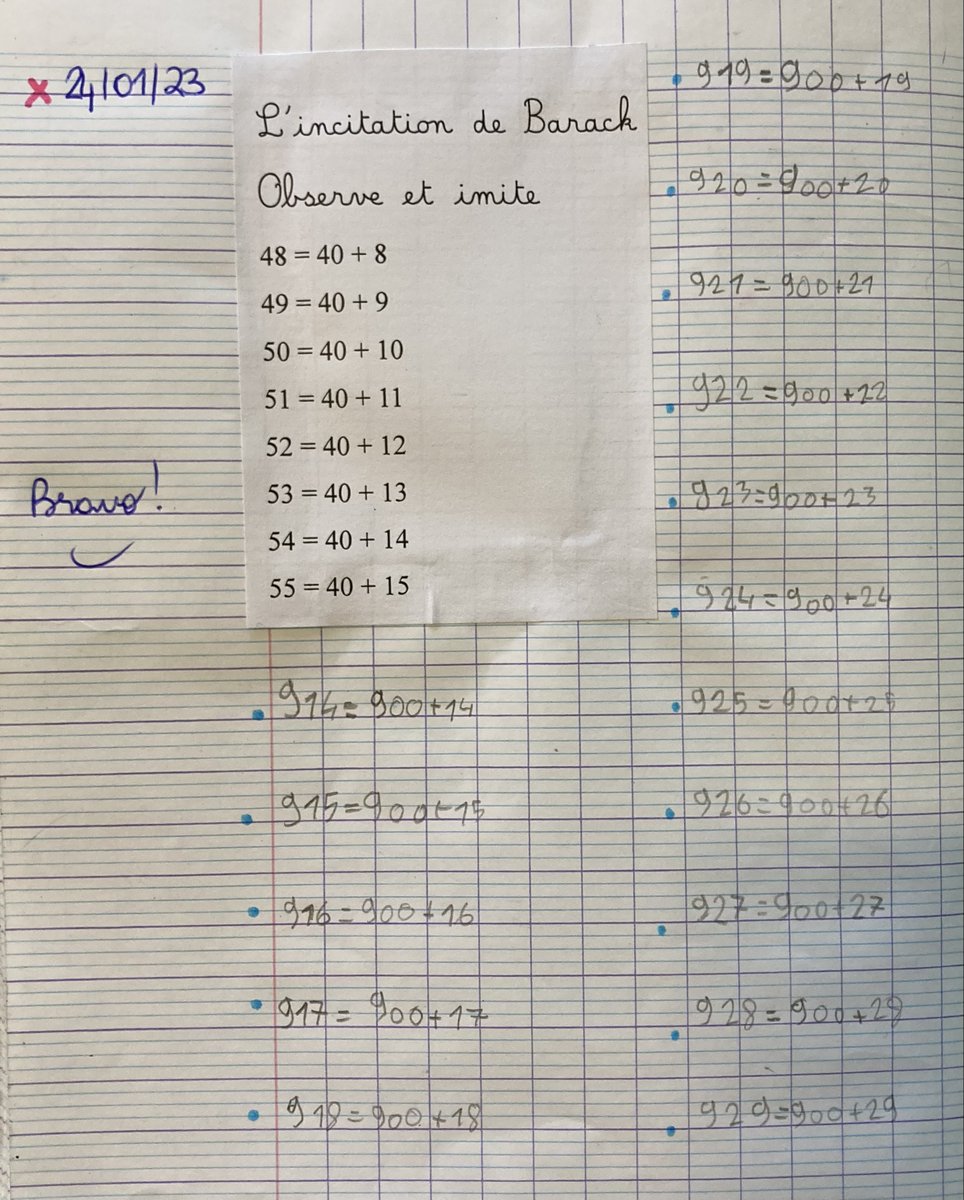 x 24/01/23
L'incitation de Barack
Observe et imite
48 = 40 + 8
49 = 40 + 9
50 = 40 + 10
51 = 40 + 11
52 = 40 + 12
53 = 40 + 13
54 = 40 + 14
55 = 40 + 15
Bravo!
914 = 900 + 14
915 = 900 + 15
916 = 900 + 16
917 = 900 + 17
918 = 900 + 18
919 = 900 + 19
920 = 900 + 20
921 = 900 + 21
922 = 900 + 22
923 = 900 + 23
924 = 900 + 24
925 = 900 + 25
926 = 900 + 26
927 = 900 + 27
928 = 900 + 28
929 = 900 + 29